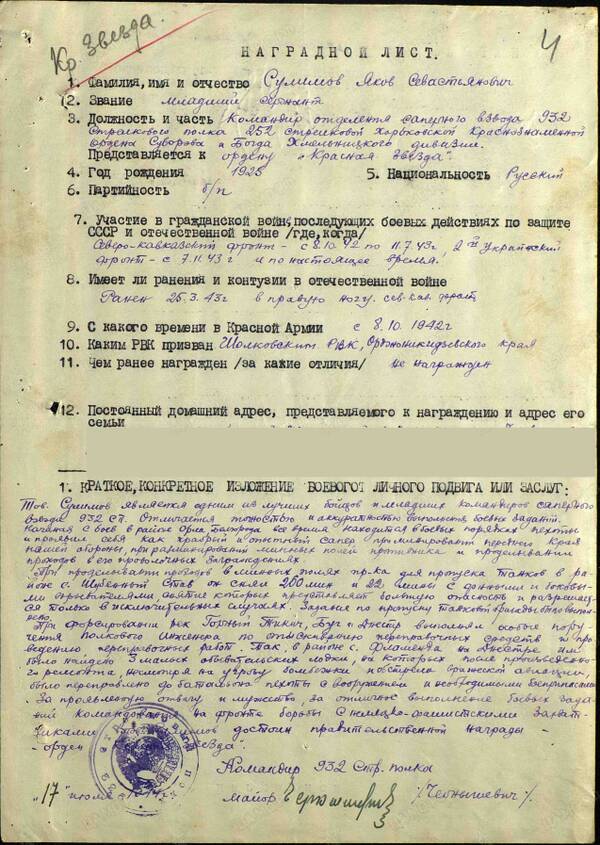 Кр. Звезда.
4
НАГРАДНОЙ ЛИСТ.
1. Фамилия, имя и отчество Сулимов Яков Севастьянович
2. Звание младший сержант
3. Должность и часть Командир отделения саперного взвода 932
Стрелкового полка 252 стрелковой Харьковской Краснознаменной
ордена Суворова и Богдана Хмельницкого дивизии.
Представляется к ордену "Красная Звезда"
4. Год рождения 1925 5. Национальность Русский
6. Партийность б/п
7. Участие в гражданской войне, последующих боевых действиях по защите
СССР и отечественной войне /где, когда/
Северо-Кавказский фронт - с 8.10.42 по 11.7.43г 2й Украинский
фронт - с 7.11.43г и по настоящее время.
8. Имеет ли ранения и контузии в отечественной войне
Ранен 25.3.43г в правую ногу. сев-кав. фронт
9. С какого времени в Красной Армии с 8.10.1942г
10. Каким РВК призван Шолковским РВК, Орджоникидзевского края
11. Чем ранее награжден /за какие отличия/ не награжден
12. Постоянный домашний адрес, представляемого к награждению и адрес его
семьи
1. КРАТКОЕ, КОНКРЕТНОЕ ИЗЛОЖЕНИЕ БОЕВОГОТ ЛИЧНОГО ПОДВИГА ИЛИ ЗАСЛУГ:
Тов. Сулимов является одним из лучших бойцов и младших командиров саперного
взвода 932 СП. Отличается точностью и аккуратностью выполнения боевых заданий.
Начиная с боев в районе все время находится в боевых порядках пехоты
и проявил себя как храбрый и опытный сапер при минировании переднего края
нашей обороны, при разминировании минных полей противника и проделывании
проходов в его проволочных заграждениях.
При проделывании проходов в минных полях пр-ка для пропуска танков в ра-
йоне с. Став он снял 200 мин и 22 мины с донными и боковы-
ми взрывателями, снятие которых представляет большую опасность и разрешает-
ся только в исключительных случаях. Задание по пропуску танков было выпол-
нено.
При форсировании рек Горный Тикич, Буг и Днестр выполнял особые пору-
чения Полкового Инженера по отыскиванию переправочных средств и про-
ведению переправочных работ. Так, в районе с. на Днестре им
было найдено 3 малых лодки, на которых после произведенно-
го ремонта, несмотря на угрозу бомбежки вражеской авиации,
было переправлено до батальона пехоты с вооружением и необходимыми боеприпасами
За проявленную отвагу и мужество, за отличное выполнение боевых зада-
ний командования на фронте борьбы с немецко-фашистскими захват-
чиками достоин правительственной награды -
- орден Звезда".
Командир 932 Стр. полка
"17" майор /Чернышевич/.